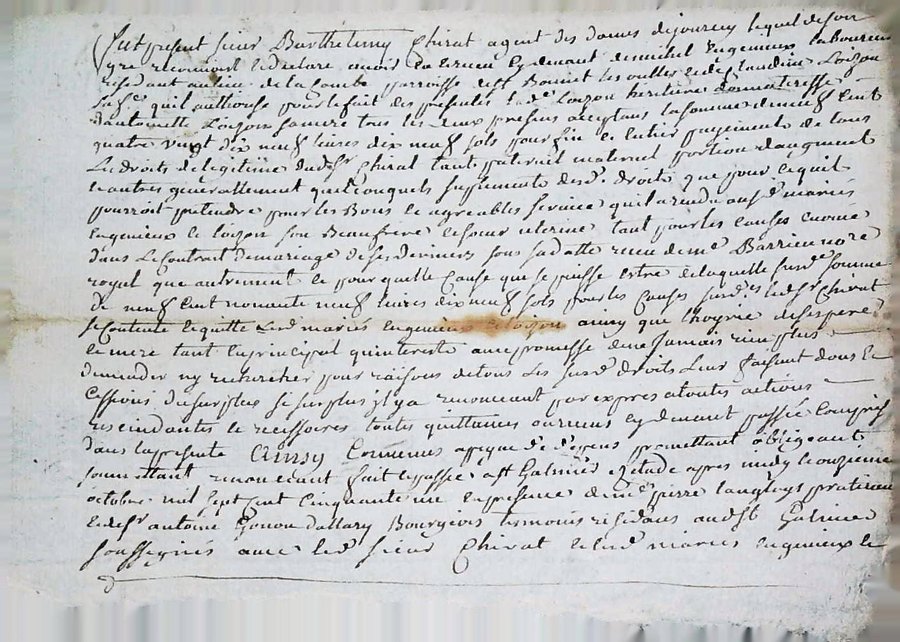 Fut présent sieur Barthelemy Chirat agent des dames dejourcey lequel deson
gré reconnoit et déclare avoir ca et receu cy devant demichel Ingenieux laboureur
residant au lieu de la Combe parroisse de St Bonnet les oulles et de Claudine Loizon
sa fe. quil authorise pour le fait des présentes lad.e Loizon heritiere donnataresse
d'antoinette Loizon sa mere tous les deux présens acceptans la somme de neuf cent
quatre vingt dix neuf livres dix neuf sols pour fin et entier payement de tous
les droits de legitime dud. sr Chirat tant paternel maternel portion daugment
et autres generallement quelconques suplements desd. droits que pour ce quil
pourroit pretendre pour les bons et agreables services quil a rendu aux d. mariés
Ingenieux et loizon son Beaufrere et soeur uterine tant pour les causes enoncé
dans le contrait de mariage de ses derniers sous sa datte receu de me Barrieu nore
royal que autrement et pour quelle cause que se puisse estre de laquelle susd.e somme
de neuf cent nonante neuf livres dix neuf sols pour les causes susd.es led. sr Chirat
se contente et quitte lesd. mariés Ingenieux et loizon ainsy que l'hoyrie de ses pere
et mere tant en principal quinterests avec promesse de ne jamais rien plus
demander ny rechercher pour raisons de tous les susd. droits leur faisant dons et
cessions du surplus si surplus il y a renonceant par exprès a toutes actions
rescindantes et rescissoires toutes quittances cy devant passée compris
dans la presente Ainsy Convenus a piyne de d. depens promettant obligeant
soumettant renonceant fait et passé a St Galmier etude apres midy le onzieme
octobre mil sept cent cinquante une en presence de me pierre langloys praticien
et de sr antoine Gonon dallary Bourgeois temoins residans aud. St Galmier
soussignés avec led. sieur Chirat et lesd. mariés Ingenieux et